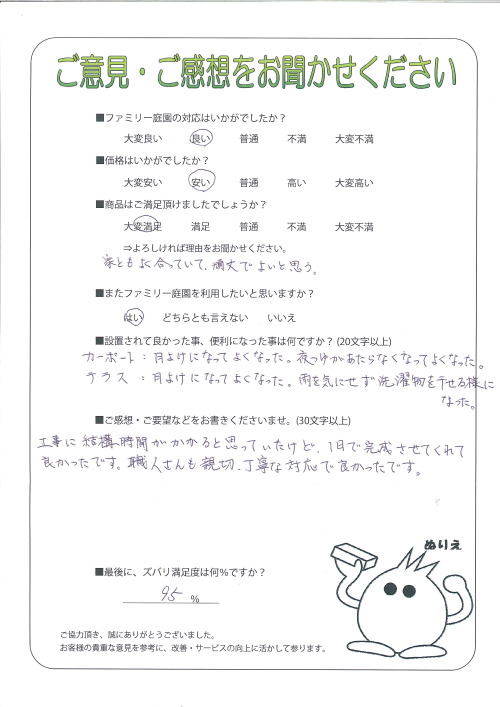 ご意見・ご感想をお聞かせください
■ファミリー庭園の対応はいかがでしたか？
大変良い 良い 普通 不満 大変不満
■価格はいかがでしたか？
大変安い 安い 普通 高い 大変高い
■商品はご満足頂けましたでしょうか？
大変満足 満足 普通 不満 大変不満
⇒よろしければ理由をお聞かせください。
家ともよく合っていて、頑丈でよいと思う。
■またファミリー庭園を利用したいと思いますか？
はい どちらとも言えない いいえ
■設置されて良かった事、便利になった事は何ですか？(20文字以上)
カーポート：日よけになってよくなった。夜つゆがあたらなくなってよくなった。
テラス：日よけになってよくなった。雨を気にせず洗濯物を干せる様に
なった。
■ご感想・ご要望などをお書きくださいませ。(30文字以上)
工事に結構時間がかかると思っていたけど、1日で完成させてくれて
良かったです。職人さんも親切、丁寧な対応で良かったです。
ぬりえ
■最後に、ズバリ満足度は何％ですか？
95 %
ご協力頂き、誠にありがとうございました。
お客様の貴重な意見を参考に、改善・サービスの向上に活かして参ります。